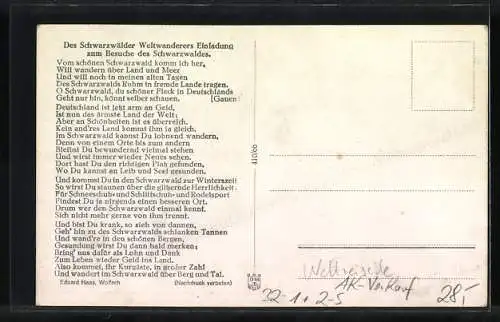 Des Schwarzwälder Weltwanderers Einladung
zum Besuche des Schwarzwaldes.
Vom schönen Schwarzwald komm ich her,
Will wandern über Land und Meer
Und will noch in meinen alten Tagen
Des Schwarzwalds Ruhm in fremde Lande tragen.
O Schwarzwald, du schöner Fleck in Deutschlands
Geht nur hin, könnt selber schauen. [Gauen!
Deutschland ist jetzt arm an Geld,
Ist nun das ärmste Land der Welt;
Aber an Schönheiten ist es überreich.
Kein and'res Land kommt ihm ja gleich.
Im Schwarzwald kannst Du lohnend wandern,
Denn von einem Orte bis zum andern
Bleibst Du bewundernd vielmal stehen
Und wirst immer wieder Neues sehen.
Dort hast Du den richtigen Platz gefunden,
Wo Du kannst an Leib und Seel gesunden.
Und kommst Du in den Schwarzwald zur Winterszeit
So wirst Du staunen über die glitzernde Herrlichkeit.
Für Schneeschuh- und Schlittschuh- und Rodelsport
Findest Du ja nirgends einen besseren Ort.
Drum wer den Schwarzwald einmal kennt,
Sich nicht mehr gerne von ihm trennt.
Und bist Du krank, so zieh von dannen,
Geh' hin zu des Schwarzwalds schlanken Tannen
Und wand're in den schönen Bergen,
Gesundung wirst Du dann bald merken;
Bring' uns dafür als Lohn und Dank
Zum Leben wieder Geld ins Land.
Also kommet, ihr Kurgäste, in großer Zahl
Und wandert im Schwarzwald über Berg und Tal.
Eduard Haas, Wolfach (Nachdruck verboten)
Weltreisende
AK-Verkauf
28,-